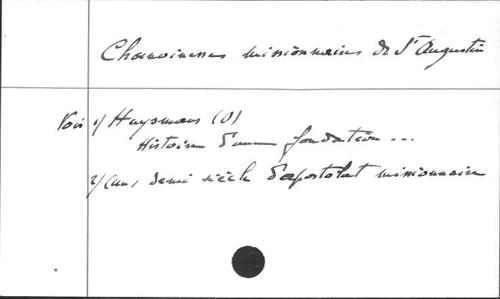 Chanoinesses missionnaires de St Augustin
Voir 1/ Huysmans (O)
Histoire d'une fondation ...
2/ (un) demi siècle d'apostolat missionnaire